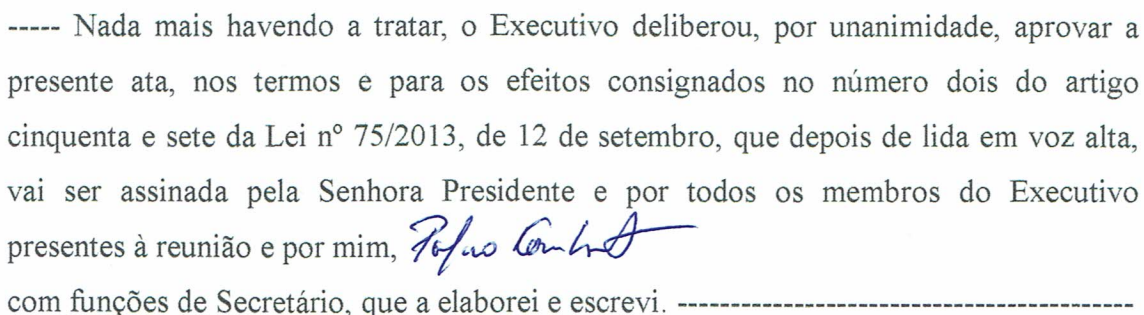 ----- Nada mais havendo a tratar, o Executivo deliberou, por unanimidade, aprovar a
presente ata, nos termos e para os efeitos consignados no número dois do artigo
cinquenta e sete da Lei nº 75/2013, de 12 de setembro, que depois de lida em voz alta,
vai ser assinada pela Senhora Presidente e por todos os membros do Executivo
presentes à reunião e por mim,
com funções de Secretário, que a elaborei e escrevi. -------------------------------------------